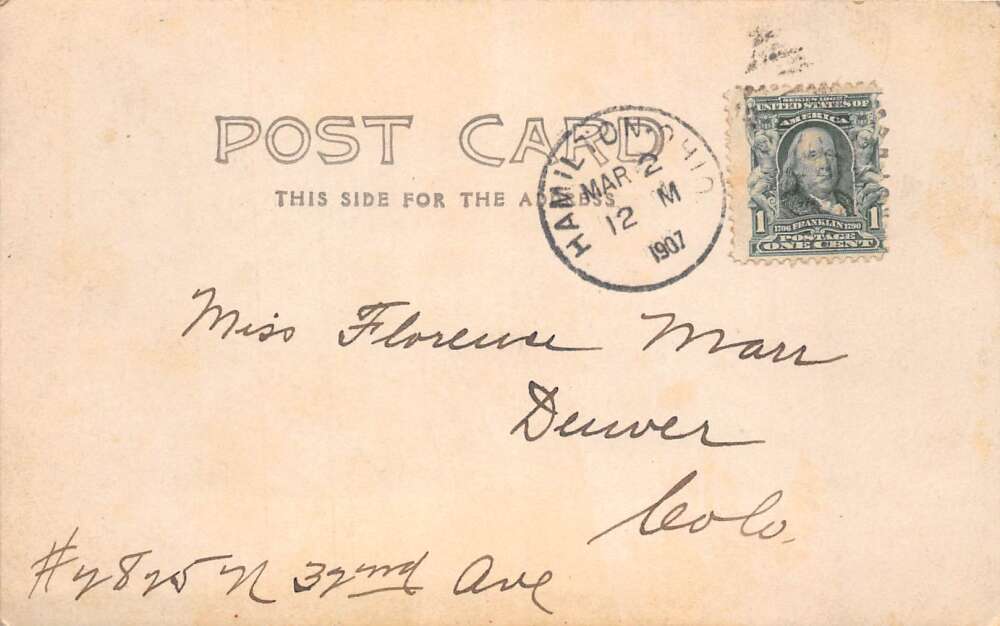 POST CARD
THIS SIDE FOR THE ADDRESS
HAMILTON, OHIO
MAR 2
12 M
1907
SERIES 1902
UNITED STATES OF
AMERICA
1 1
1706 FRANKLIN 1790
POSTAGE
ONE CENT
Miss Florence Marr
Denver
Colo.
#2825 N 32nd Ave